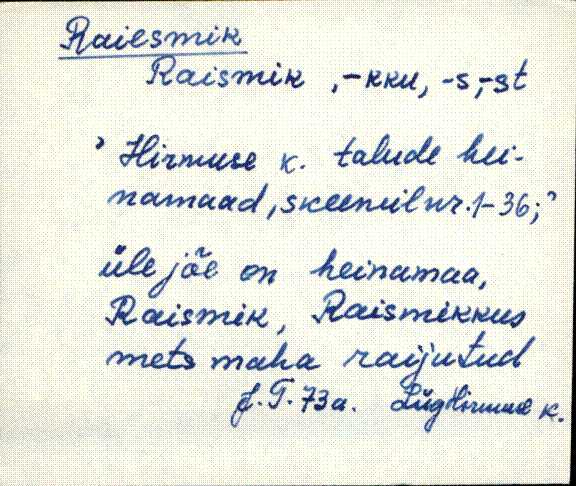 Raiesmik
Raismik, -kku, -s, -st
’ Hirmuse k. talude hei-
namaad, skeemil nr. 1-36; ’
üle jõe on heinamaa,
Raismik, Raismikkus
mets maha raijutud
J. T. 73 a. Lüg Hirmuse k.